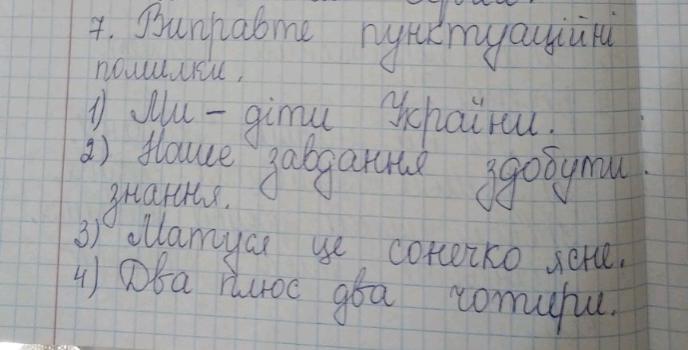 7. Виправте пунктуаційні
помилки.
1) Ми – діти України.
2) Наше завдання здобути
знання.
3) Матуся це сонечко ясне.
4) Два плюс два чотири.